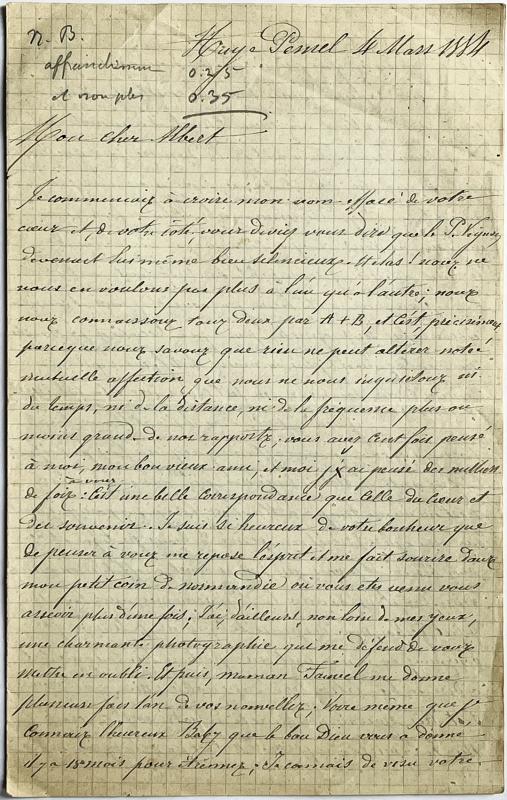 N. B.
affranchissem
0.25
et non plus
0.35
Haye Pesnel 4 Mars 1884
Mon cher Albert
Je commençais à croire mon nom effacé de votre
cœur et, de votre côté, vous deviez vous dire que le P.
devenait lui même bien silencieux. Hélas! nous ne
nous en voulons pas plus à l'un qu'à l'autre; nous
nous connaissons tous deux par A + B, et c'est précisément
parceque nous savons que rien ne peut altérer notre
mutuelle affection, que nous ne nous inquiétons ni
du temps, ni de la distance, ni de la fréquence plus ou
moins grande de nos rapports; vous avez cent fois pensé
à moi, mon bon vieux ami, et moi j'ai pensé des milliers
de fois à vous: c'est une belle correspondance que celle du cœur et
du souvenir. Je suis si heureux de votre bonheur que
de penser à vous me repose l'esprit et me fait sourire dans
mon petit coin de normandie où vous etes venu vous
asseoir plus d'une fois; j'ai d'ailleurs, non loin de mes yeux,
une charmante photographie qui me défend de vous
mettre en oubli. Et puis, maman Fauvel me donne
plusieurs fois l'an de vos nouvelles; Voire même que je
connais l'heureux Baby que le bon Dieu vous a donné
il y a 15 mois pour étrennes; Je connais de visu votre